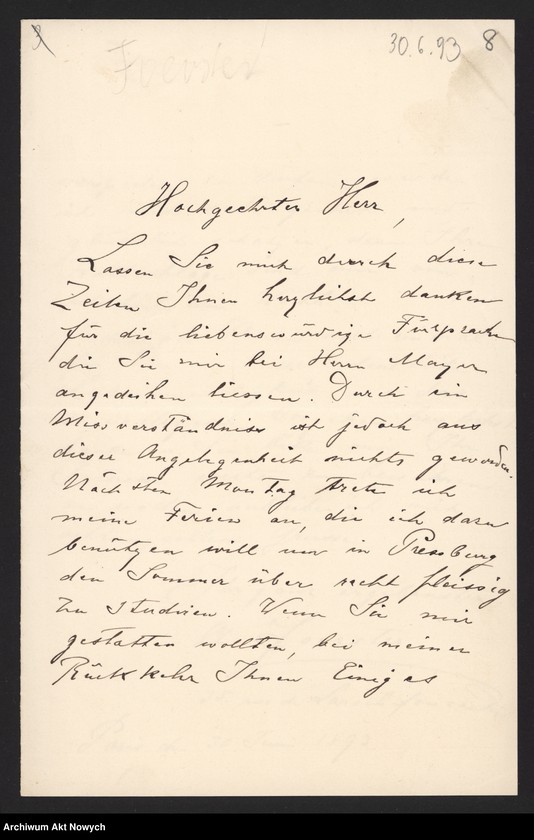 30.6.93 8
Hochgeehrter Herr,
Lassen Sie mich durch diese
Zeilen Ihnen herzlichst danken
für die liebenswürdige Fürsprache
die Sie mir bei Herrn Mayer
angedeihen liessen. Durch ein
Missverständniss ist jedoch aus
dieser Angelegenheit nichts geworden.
Nächsten Montag trete ich
meine Ferien an, die ich dazu
benützen will um in Pressburg
den Sommer über recht fleissig
zu studiren. Wenn Sie mir
gestatten wollten, bei meiner
Rückkehr Ihnen Einiges
Archiwum Akt Nowych